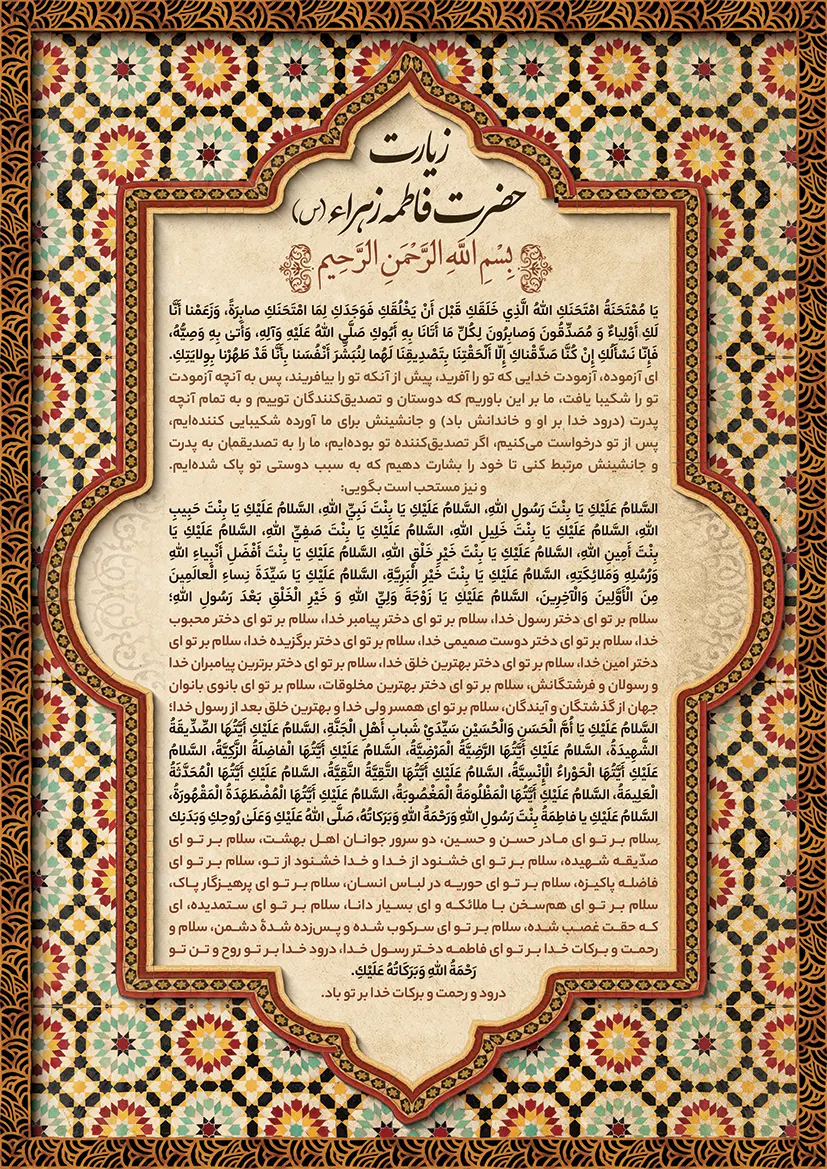 زیارت
حضرت فاطمه زهراء (س)
بِسْمِ اللَّهِ الرَّحْمَنِ الرَّحِيمِ
يَا مُمْتَحَنَةُ امْتَحَنَكِ اللهُ الَّذِي خَلَقَكِ قَبْلَ أَنْ يَخْلُقَكِ فَوَجَدَكِ لِمَا امْتَحَنَكِ صابِرَةً، وَزَعَمْنا أَنَّا
لَكِ أَوْلِياءٌ وَ مُصَدِّقُونَ وَصابِرُونَ لِكُلِّ مَا أَتَانَا بِهِ أَبُوكِ صَلَّى اللهُ عَلَيْهِ وَآلِهِ، وَأَتىٰ بِهِ وَصِيُّهُ،
فَإِنَّا نَسْأَلُكِ إِنْ كُنَّا صَدَّقْناكِ إِلَّا أَلْحَقْتِنَا بِتَصْدِيقِنَا لَهُما لِنُبَشِّرَ أَنْفُسَنا بِأَنَّا قَدْ طَهُرْنا بِوِلايَتِكِ.
ای آزموده، آزمودت خدایی که تو را آفرید، پیش از آنکه تو را بیافریند، پس به آنچه آزمودت
تو را شکیبا یافت، ما بر این باوریم که دوستان و تصدیق‌کنندگان توییم و به تمام آنچه
پدرت (درود خدا بر او و خاندانش باد) و جانشینش برای ما آورده شکیبایی کننده‌ایم،
پس از تو درخواست می‌کنیم، اگر تصدیق‌کننده تو بوده‌ایم، ما را به تصدیقمان به پدرت
و جانشینش مرتبط کنی تا خود را بشارت دهیم که به سبب دوستی تو پاک شده‌ایم.
و نیز مستحب است بگویی:
السَّلامُ عَلَيْكِ يَا بِنْتَ رَسُولِ اللهِ، السَّلامُ عَلَيْكِ يَا بِنْتَ نَبِيِّ اللهِ، السَّلامُ عَلَيْكِ يَا بِنْتَ حَبِيبِ
اللهِ، السَّلامُ عَلَيْكِ يَا بِنْتَ خَلِيلِ اللهِ، السَّلامُ عَلَيْكِ يَا بِنْتَ صَفِيِّ اللهِ، السَّلامُ عَلَيْكِ يَا
بِنْتَ أَمِينِ اللهِ، السَّلامُ عَلَيْكِ يَا بِنْتَ خَيْرِ خَلْقِ اللهِ، السَّلامُ عَلَيْكِ يَا بِنْتَ أَفْضَلِ أَنْبِياءِ اللهِ
وَرُسُلِهِ وَمَلائِكَتِهِ، السَّلامُ عَلَيْكِ يَا بِنْتَ خَيْرِ الْبَرِيَّةِ، السَّلامُ عَلَيْكِ يَا سَيِّدَةَ نِساءِ الْعالَمِينَ
مِنَ الْأَوَّلِينَ وَالْآخِرِينَ، السَّلامُ عَلَيْكِ يَا زَوْجَةَ وَلِيِّ اللهِ وَ خَيْرِ الْخَلْقِ بَعْدَ رَسُولِ اللهِ؛
سلام بر تو ای دختر رسول خدا، سلام بر تو ای دختر پیامبر خدا، سلام بر تو ای دختر محبوب
خدا، سلام بر تو ای دختر دوست صمیمی خدا، سلام بر تو ای دختر برگزیده خدا، سلام بر تو ای
دختر امین خدا، سلام بر تو ای دختر بهترین خلق خدا، سلام بر تو ای دختر برترین پیامبران خدا
و رسولان و فرشتگانش، سلام بر تو ای دختر بهترین مخلوقات، سلام بر تو ای بانوی بانوان
جهان از گذشتگان و آیندگان، سلام بر تو ای همسر ولی خدا و بهترین خلق بعد از رسول خدا؛
السَّلامُ عَلَيْكِ يَا أُمَّ الْحَسَنِ وَالْحُسَيْنِ سَيِّدَيْ شَبابِ أَهْلِ الْجَنَّةِ، السَّلامُ عَلَيْكِ أَيَّتُهَا الصِّدِّيقَةُ
الشَّهِيدَةُ، السَّلامُ عَلَيْكِ أَيَّتُهَا الرَّضِيَّةُ الْمَرْضِيَّةُ، السَّلامُ عَلَيْكِ أَيَّتُهَا الْفاضِلَةُ الزَّكِيَّةُ، السَّلامُ
عَلَيْكِ أَيَّتُهَا الْحَوْراءُ الْإِنْسِيَّةُ، السَّلامُ عَلَيْكِ أَيَّتُهَا التَّقِيَّةُ النَّقِيَّةُ، السَّلامُ عَلَيْكِ أَيَّتُهَا الْمُحَدَّثَةُ
الْعَلِيمَةُ، السَّلامُ عَلَيْكِ أَيَّتُهَا الْمَظْلُومَةُ الْمَغْصُوبَةُ، السَّلامُ عَلَيْكِ أَيَّتُهَا الْمُضْطَهَدَةُ الْمَقْهُورَةُ،
السَّلامُ عَلَيْكِ يا فاطِمَةُ بِنْتَ رَسُولِ اللهِ وَرَحْمَةُ اللهِ وَبَرَكاتُهُ، صَلَّى اللهُ عَلَيْكِ وَعَلَىٰ رُوحِكِ وَبَدَنِكِ
سلام بر تو ای مادر حسن و حسین، دو سرور جوانان اهل بهشت، سلام بر تو ای
صدّیقه شهیده، سلام بر تو ای خشنود از خدا و خدا خشنود از تو، سلام بر تو ای
فاضله پاکیزه، سلام بر تو ای حوریه در لباس انسان، سلام بر تو ای پرهیزگار پاک،
سلام بر تو ای هم‌سخن با ملائکه و ای بسیار دانا، سلام بر تو ای ستمدیده، ای
که حقت غصب شده، سلام بر تو ای سرکوب شده و پس‌زده شدهٔ دشمن، سلام و
رحمت و برکات خدا بر تو ای فاطمه دختر رسول خدا، درود خدا بر تو و روح و تن تو
رَحْمَةُ اللهِ وَبَرَكَاتُهُ عَلَيْكِ.
درود و رحمت و برکات خدا بر تو باد.